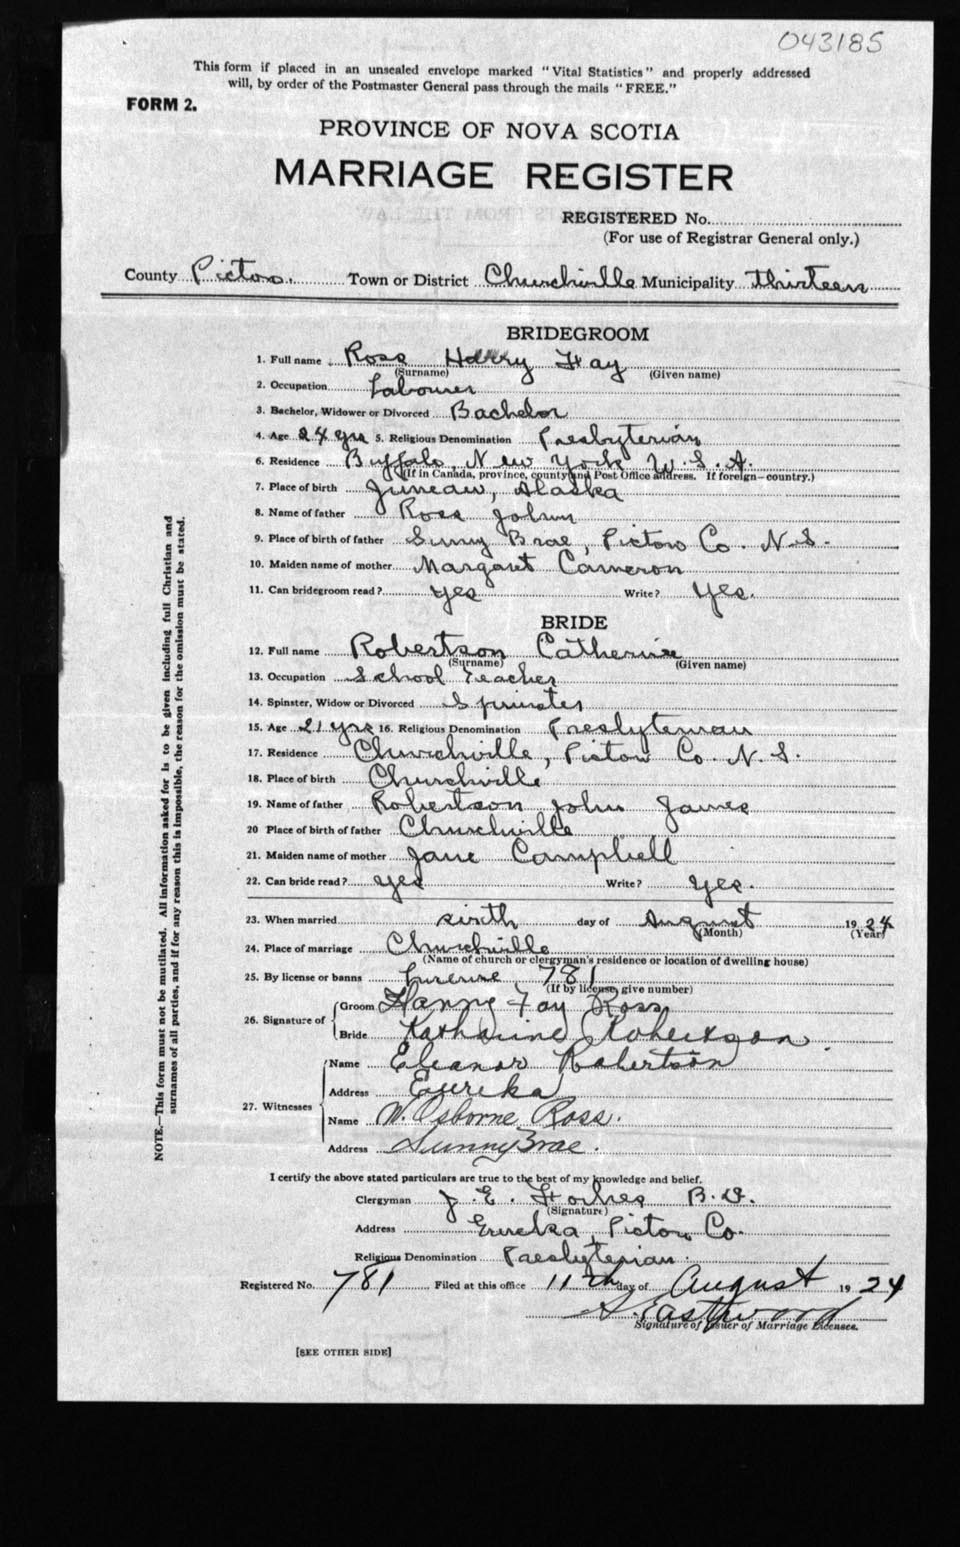 043185
This form if placed in an unsealed envelope marked "Vital Statistics" and properly addressed
will, by order of the Postmaster General pass through the mails "FREE."
FORM 2.
PROVINCE OF NOVA SCOTIA
MARRIAGE REGISTER
REGISTERED No.
(For use of Registrar General only.)
County Pictou. Town or District Churchville Municipality Thirteen
BRIDEGROOM
1. Full name Ross Harry Fay
(Surname) (Given name)
2. Occupation Labourer
3. Bachelor, Widower or Divorced Bachelor
4. Age 24 yrs 5. Religious Denomination Presbyterian
6. Residence Buffalo, New York U.S.A.
(If in Canada, province, county and Post Office address. If foreign—country.)
7. Place of birth Juneau, Alaska
8. Name of father Ross John
9. Place of birth of father Sunny Brae, Pictou Co. N.S.
10. Maiden name of mother Margaret Cameron
11. Can bridegroom read? Yes Write? Yes.
BRIDE
12. Full name Robertson Catherine
(Surname) (Given name)
13. Occupation School Teacher
14. Spinster, Widow or Divorced Spinster
15. Age 21 yrs 16. Religious Denomination Presbyterian
17. Residence Churchville, Pictou Co. N.S.
18. Place of birth Churchville
19. Name of father Robertson John James
20 Place of birth of father Churchville
21. Maiden name of mother Jane Campbell
22. Can bride read? yes Write? yes.
23. When married sixth day of August 1924
(Month) (Year)
24. Place of marriage Churchville
(Name of church or clergyman's residence or location of dwelling house)
25. By license or banns License 781
(If by license, give number)
26. Signature of Groom Harry Fay Ross
Bride Katharine Robertson.
27. Witnesses Name Eleanor Robertson
Address Eureka
Name W. Osborne Ross.
Address SunnyBrae.
I certify the above stated particulars are true to the best of my knowledge and belief.
Clergyman J. E. Forbes B.D.
(Signature)
Address Eureka, Pictou Co.
Religious Denomination Presbyterian.
Registered No. 781 Filed at this office 11th day of August 1924
Eastwood
Signature of Issuer of Marriage Licenses.
[SEE OTHER SIDE]
NOTE.—This form must not be mutilated. All information asked for is to be given including full Christian and
surnames of all parties, and if for any reason this is impossible, the reason for the omission must be stated.